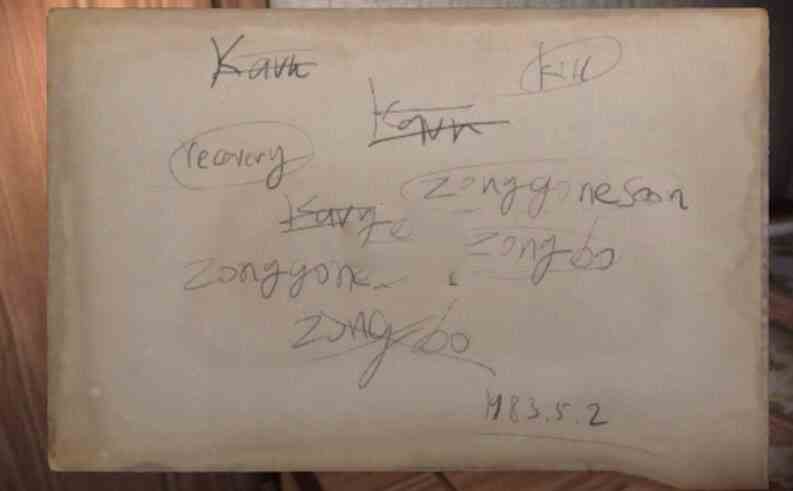 Kavn
kill
Kavn
recovery
zonggonesoon
Kavy
zongbo
zonggone
zongbo
1983.5.2